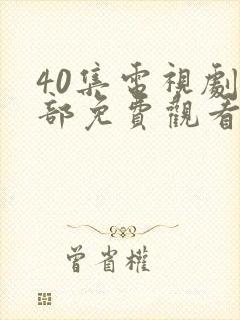 40集電視劇
部免費觀看
曾省權